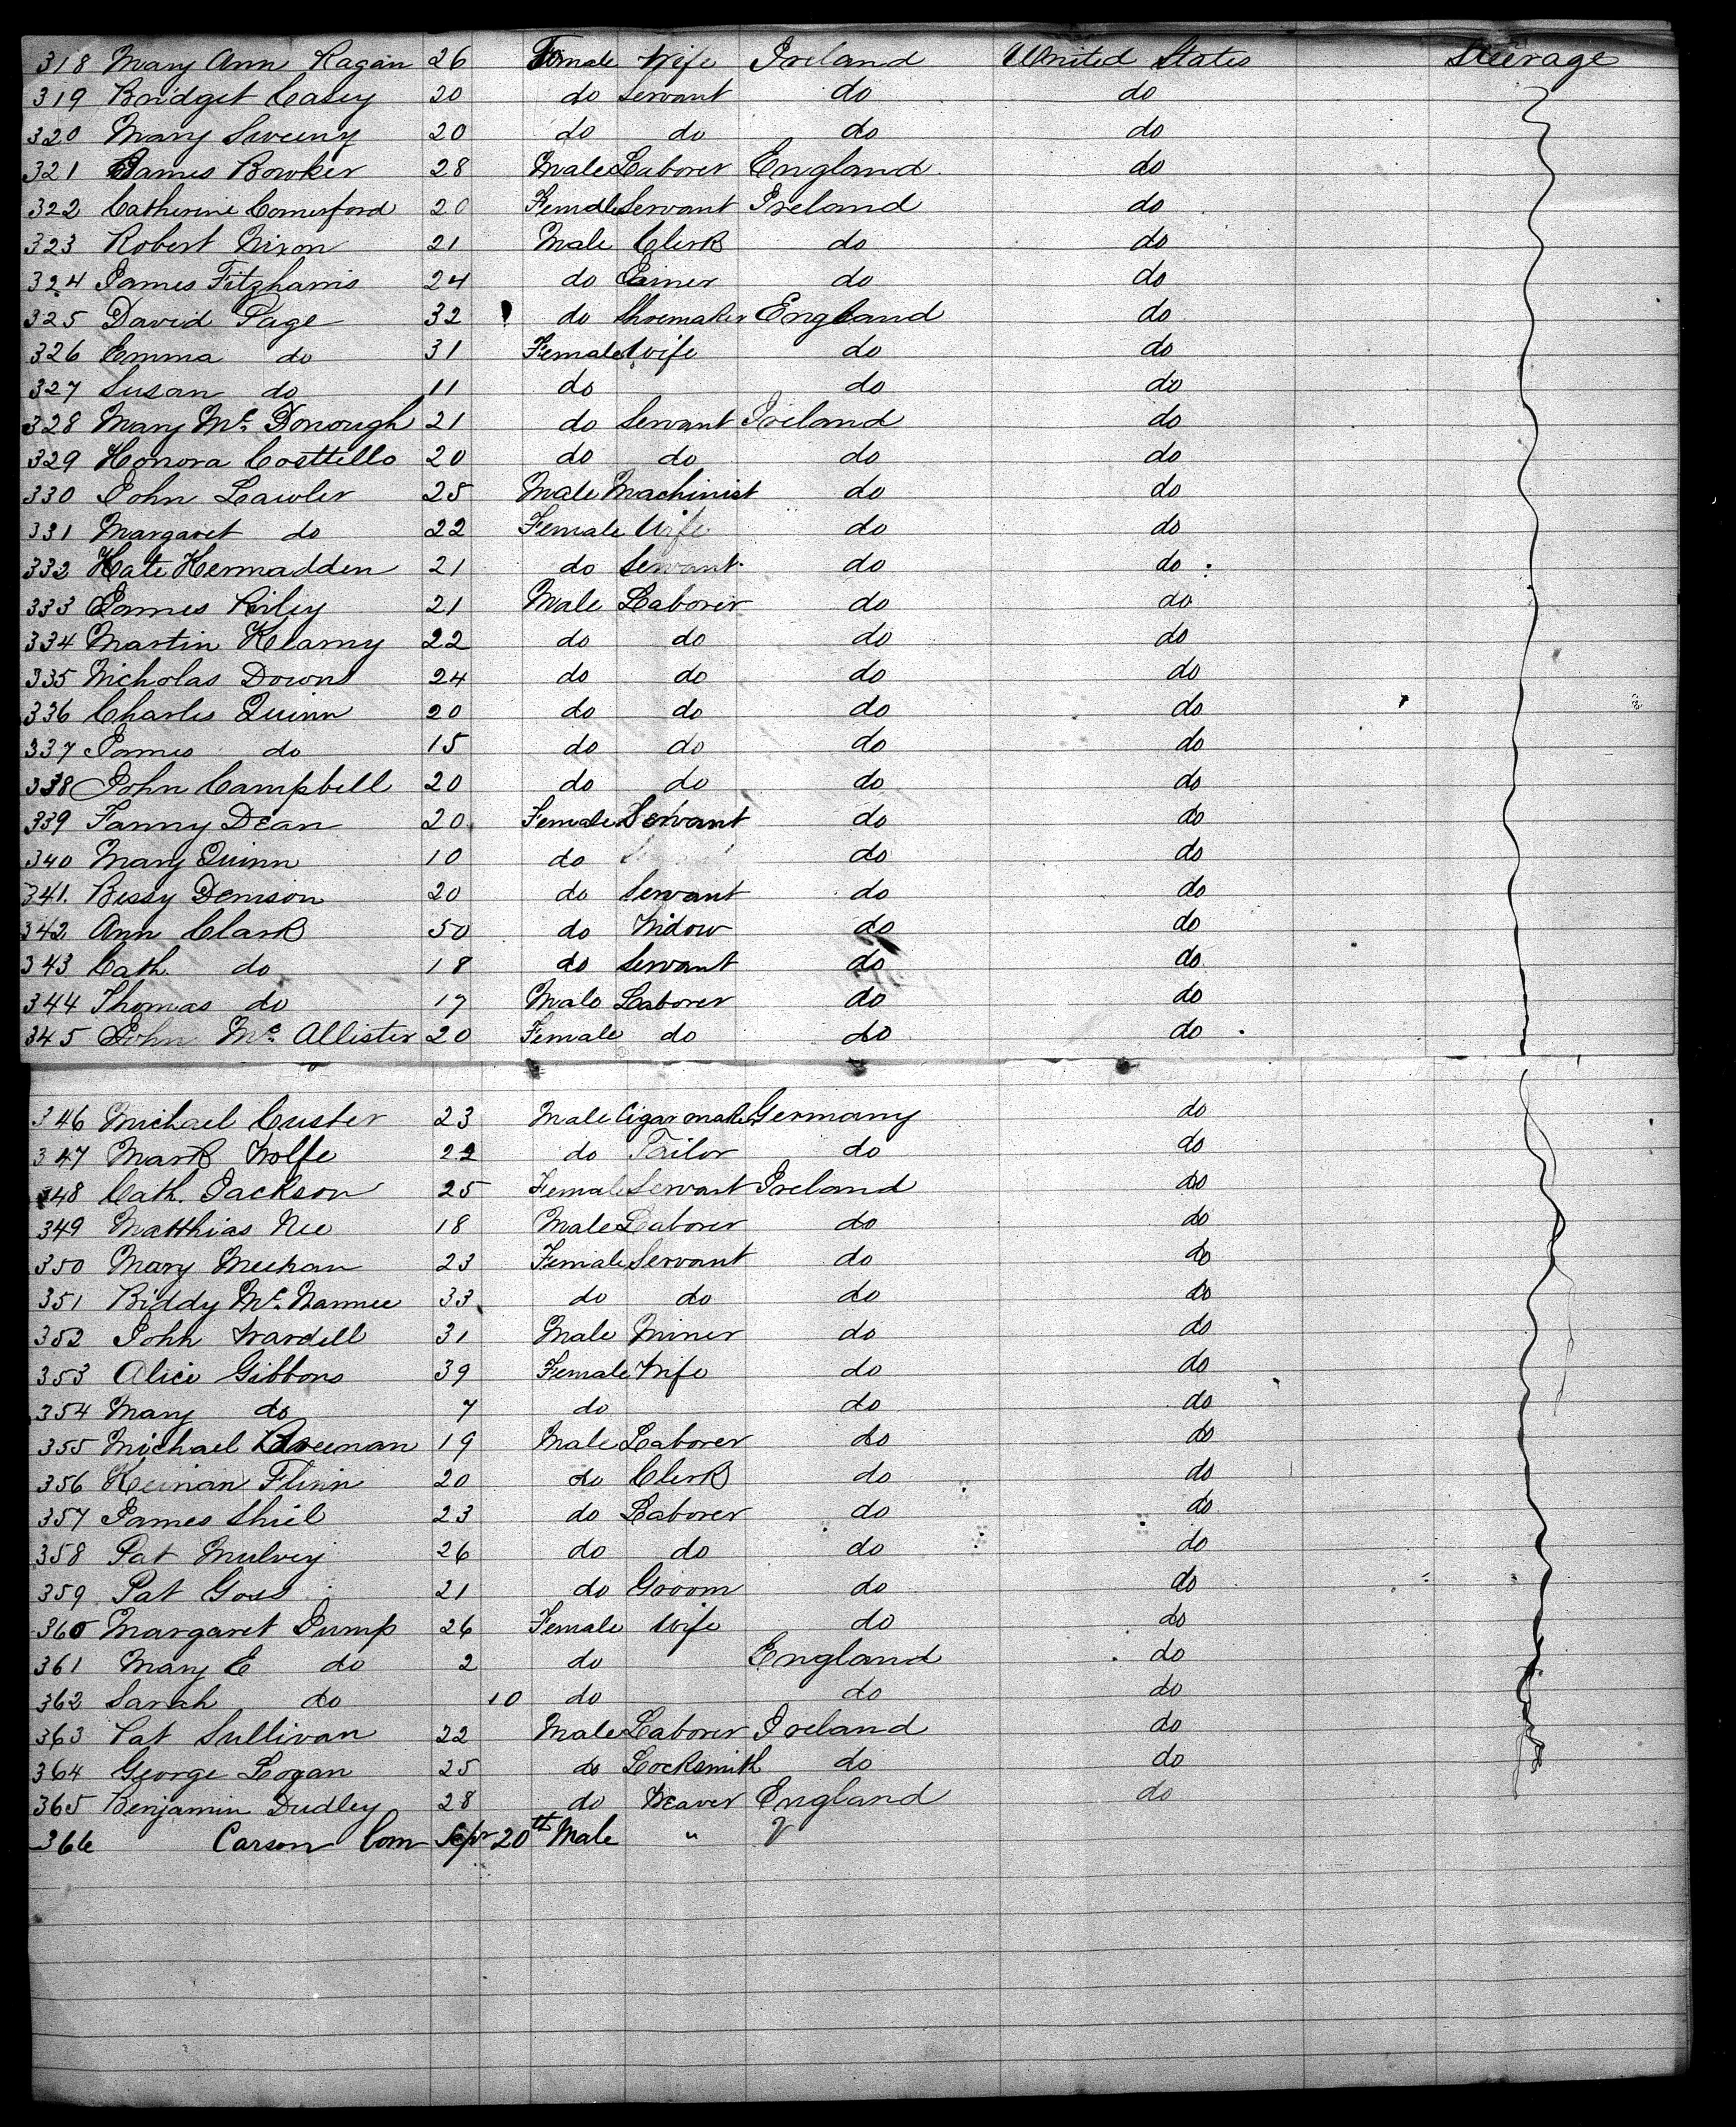 318 Mary Ann Ragan 26 Female Wife Ireland United States Steerage
319 Bridget Casey 20 do Servant do do
320 Mary Sweeny 20 do do do do
321 James Bowker 28 Male Laborer England do
322 Catherine Comerford 20 Female Servant Ireland do
323 Robert Nixon 21 Male Clerk do do
324 James Fitzharris 24 do do do
325 David Page 32 do Shoemaker England do
326 Emma do 31 Female Wife do do
327 Susan do 11 do do do
328 Mary Mc Donough 21 do Servant Ireland do
329 Honora Costtello 20 do do do do
330 John Lawler 25 Male Machinist do do
331 Margaret do 22 Female Wife do do
332 Kate Kermadden 21 do Servant do do
333 James Riley 21 Male Laborer do do
334 Martin Klarny 22 do do do do
335 Nicholas Downs 24 do do do do
336 Charles Quinn 20 do do do do
337 James do 15 do do do do
338 John Campbell 20 do do do do
339 Fanny Dean 20 Female Servant do do
340 Mary Quinn 10 do do do
341. Bessy Denison 20 do Servant do do
342 Ann Clark 50 do Widow do do
343 Cath. do 18 do Servant do do
344 Thomas do 17 Male Laborer do do
345 John Mc Allister 20 Female do do do
346 Michael Custer 23 Male Cigar maker Germany do
347 Mark Wolfe 22 do Tailor do do
348 Cath. Jackson 25 Female Servant Ireland do
349 Matthias Nee 18 Male Laborer do do
350 Mary Meehan 23 Female Servant do do
351 Biddy Mc Namee 33 do do do do
352 John Wardell 31 Male Miner do do
353 Alice Gibbons 39 Female Wife do do
354 Mary do 7 do do do
355 Michael 19 Male Laborer do do
356 Keinan Flinn 20 do Clerk do do
357 James Shiel 23 do Laborer do do
358 Pat Mulvey 26 do do do do
359 Pat Goss 21 do Groom do do
360 Margaret Jump 26 Female Wife do do
361 Mary E do 2 do England do
362 Sarah do 10 do do do
363 Pat Sullivan 22 Male Laborer Ireland do
364 George Logan 25 do Locksmith do do
365 Benjamin Dudley 28 do Weaver England do
366 Carson born Sepr 20th Male "